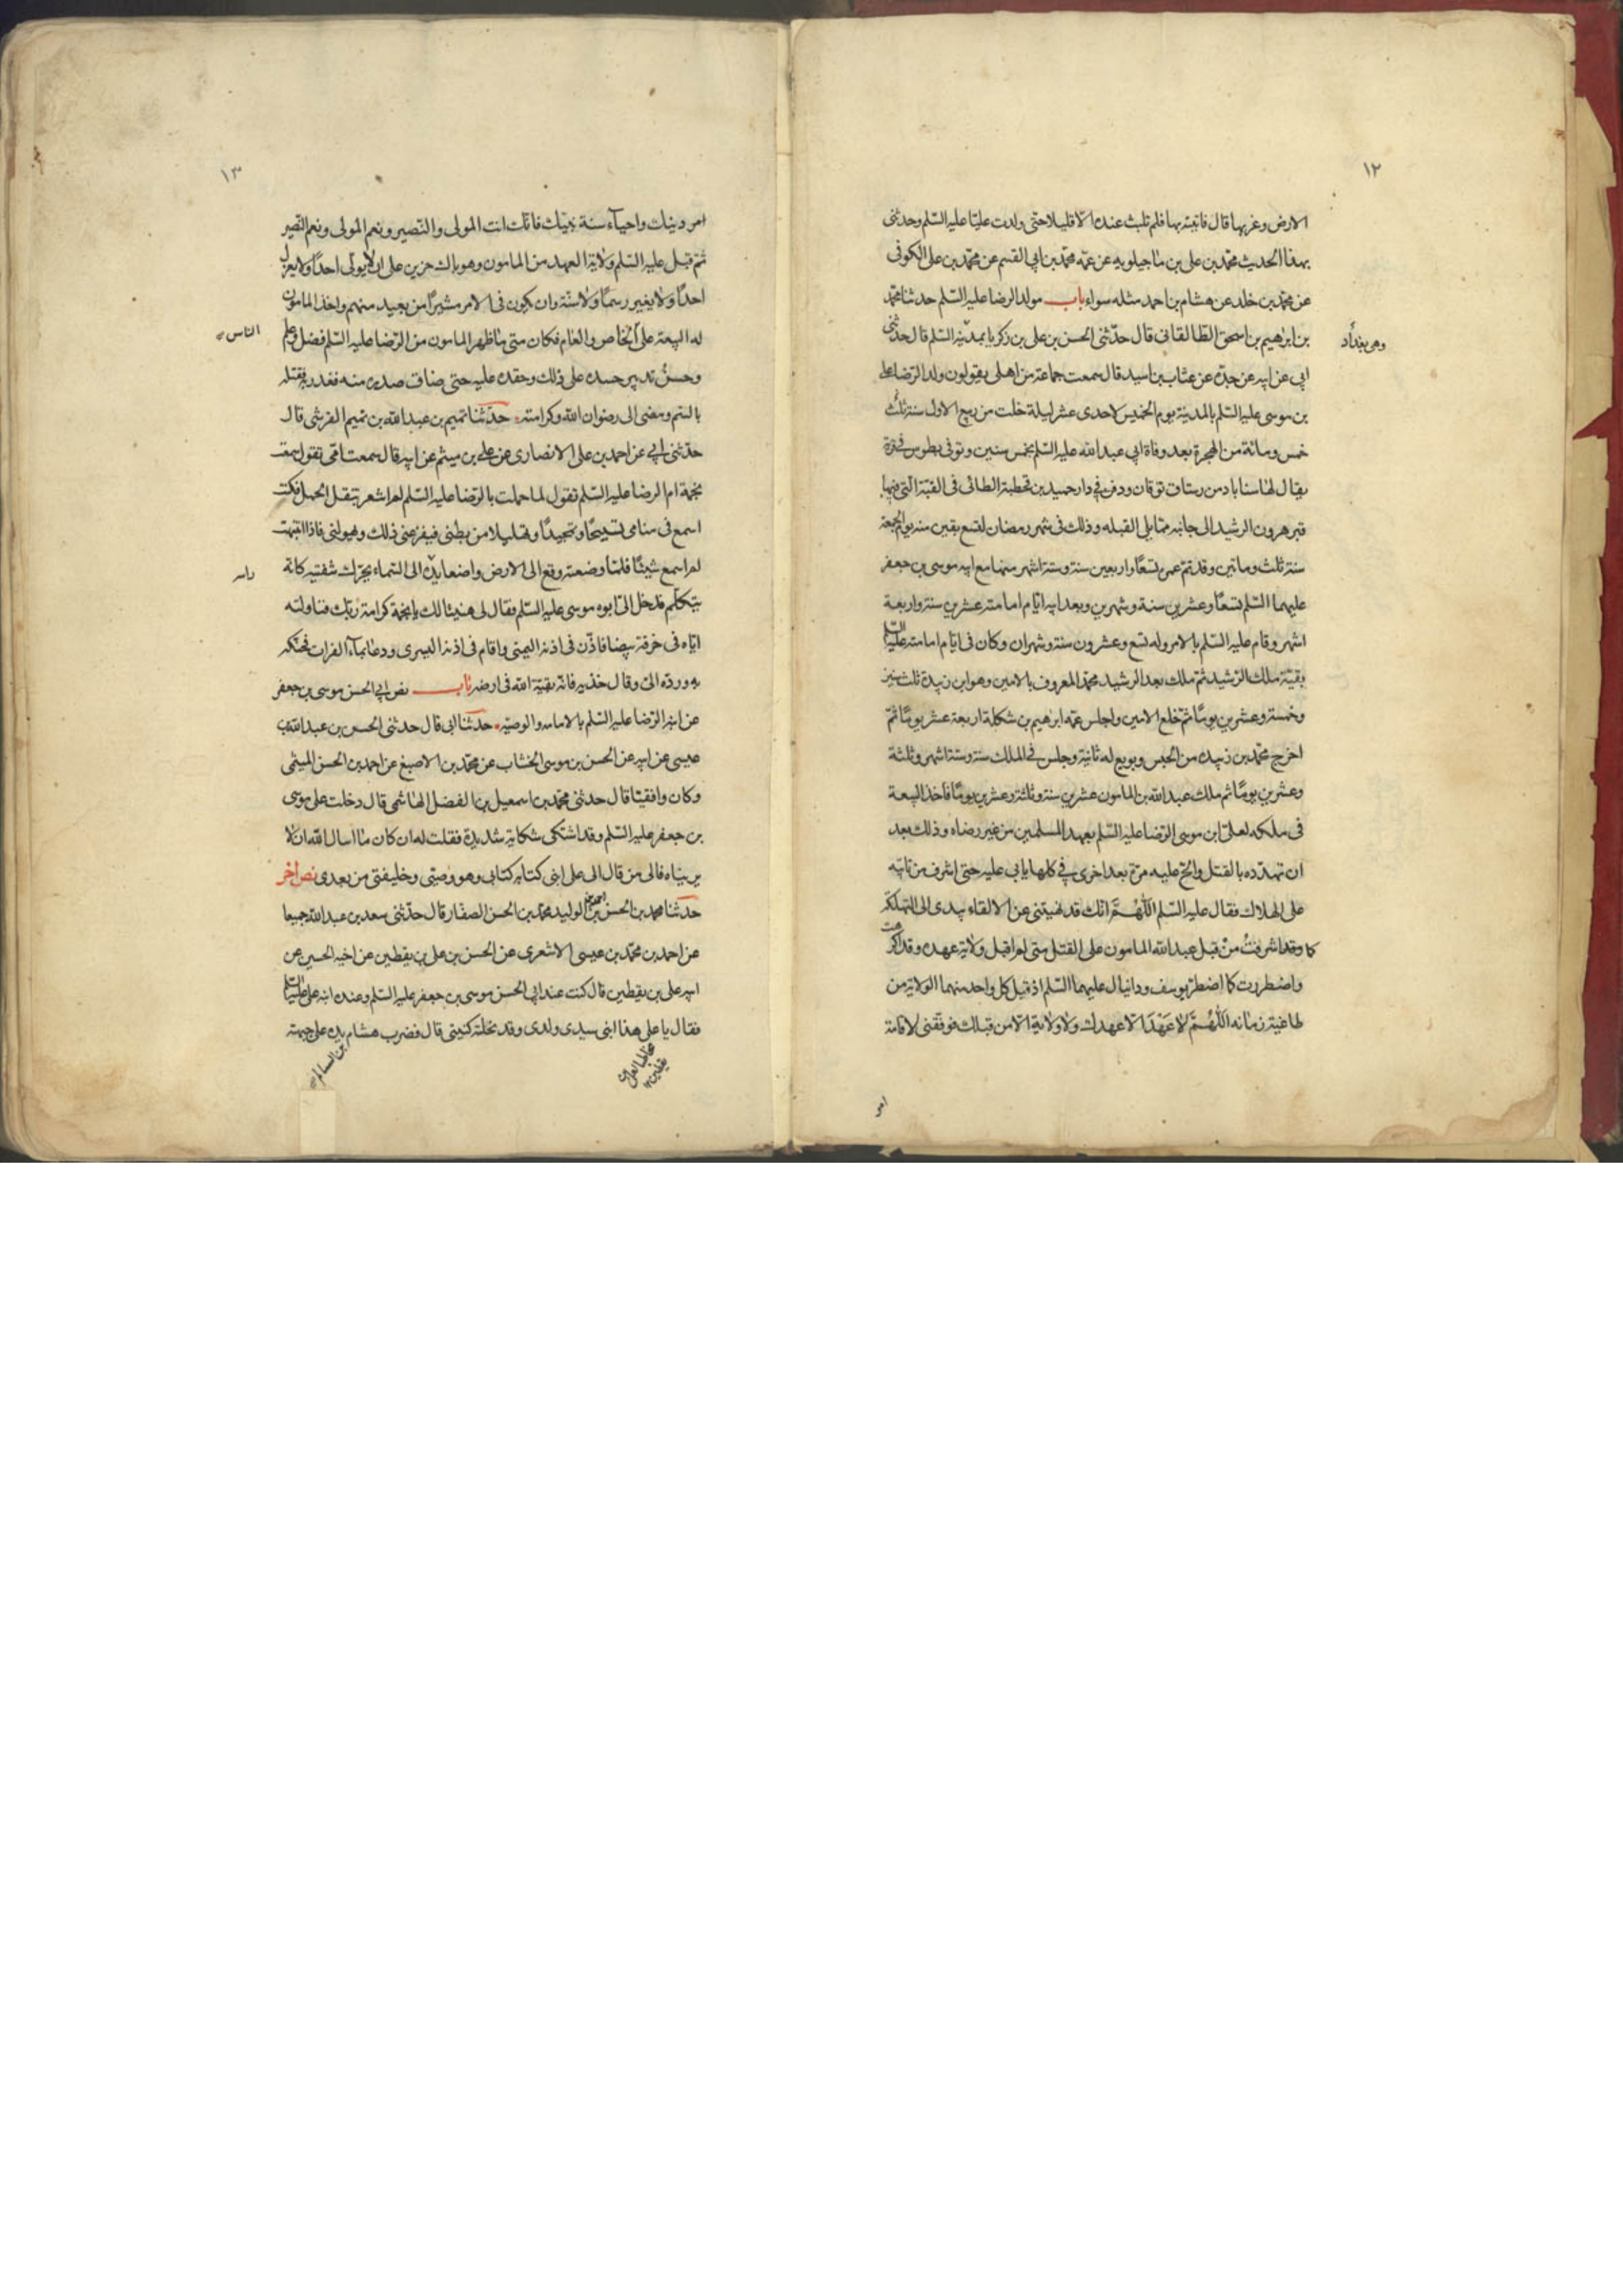 ١٢
الارض وغربها قال فاتيته بها فلم تلبث عنده الا قليلا حتى ولدت عليا عليه السلم وحدثنى
بهذا الحديث محمد بن على بن ماجيلويه عن عمه محمد بن ابى القسم عن محمد بن على الكوفى
عن محمد بن خلد عن هشام بن احمد مثله سواء باب مولد الرضا عليه السلم حدثنا محمد
بن ابرهيم بن اسحق الطالقانى قال حدثنى الحسن بن على بن زكريا بمدينة السلم قال حدثنى
وهى بغداد
ابى عن ابيه عن جده عن عتاب بن اسيد قال سمعت جماعة من اهلى يقولون ولد الرضا على
بن موسى عليه السلم بالمدينة يوم الخميس لاحدى عشر ليلة خلت من ربيع الاول سنة ثلث
خمس ومائة من الهجرة بعد وفاة ابى عبد الله عليه السلم بخمس سنين وتوفى بطوس فى قرية
يقال لها سناباد من رستاق نوقان ودفن فى دار حميد بن قحطبة الطائى فى القبة التى فيها
قبر هرون الرشيد الى جانبه مما يلى القبله وذلك فى شهر رمضان لتسع بقين منه يوم الجمعة
سنة ثلث وماتين وقد تم عمره تسعا واربعين سنة وستة اشهر منها مع ابيه موسى بن جعفر
عليهما السلم تسعا وعشرين سنة وشهرين وبعد ابيه ايام امامته عشرين سنة واربعة
اشهر وقام عليه السلم بالامر وله تسع وعشرون سنة وشهران وكان فى ايام امامته عليه السلم
بقية ملك الرشيد ثم ملك بعد الرشيد محمد المعروف بالامين وهو ابن زبيدة ثلث سنين
وخمسة وعشرين يوما ثم خلع الامين واجلس عمه ابرهيم بن شكلة اربعة عشر يوما ثم
اخرج محمد بن زبيده من الحبس وبويع له ثانية وجلس فى الملك سنة وستة اشهر وثلثة
وعشرين يوما ثم ملك عبد الله بن المامون عشرين سنة وثلثة وعشرين يوما فاخذ البيعة
فى ملكه لعلى ابن موسى الرضا عليه السلم بعهد المسلمين من غير رضاه وذلك بعد
ان تهدده بالقتل والح عليه مرة بعد اخرى فى كلها يابى عليه حتى اشرف من تابيه
على الهلاك فقال عليه السلم اللهم انك قد نهيتنى عن الالقاء بيدى الى التهلكة
كا وقد اشرفت من قبل عبد الله المامون على القتل متى لم اقبل ولاية عهده وقد اكرهت
واضطررت كا اضطر يوسف ودانيال عليهما السلم اذ قبل كل واحد منهما الولاية من
طاغية زمانه اللهم لا عهدا الا عهدك ولا ولاية الا من قبلك فوفقنى لاقامة
امر
١٣
امر دينك واحياء سنة نبيك فانك انت المولى والنصير ونعم المولى ونعم النصير
ثم قبل عليه السلم ولاية العهد من المامون وهو باك حزين على ان لا يولى احدا ولا يعزل
احدا ولا يغير رسما ولا سنة وان يكون فى الامر مشيرا من بعيد منهم واخذ المامون
له البيعة على الخاص والعام فكان متى ما ظهر المامون من الرضا عليه السلم فضل وعلم
الناس
وحسن تدبير حسده على ذلك وحقده عليه حتى ضاق صدره منه فغدر به فقتله
بالسم ومضى الى رضوان الله وكرامته حدثنا تميم بن عبد الله بن تميم القرشى قال
حدثنى ابى عن احمد بن على الانصارى عن على بن ميثم عن ابيه قال سمعت امى تقول سمعت
نجمة ام الرضا عليه السلم تقول لما حملت بالرضا عليه السلم لم اشعر بثقل الحمل فكنت
اسمع فى منامى تسبيحا وتحميدا وتهليلا من بطنى فيفزعنى ذلك وهولنى فاذا انتبهت
لم اسمع شيئا فلما وضعته وقع الى الارض واضعا يده الى السماء يحرك شفتيه كانه
راسه
يتكلم فدخل الى ابوه موسى عليه السلم فقال لى هنيئا لك يا نجمة كرامة ربك فناولته
اياه فى خرقة بيضا فاذن فى اذنه اليمنى واقام فى اذنه اليسرى ودعا بماء الفرات فحنكه
به ورده الى وقال خذيه فانه بقية الله فى ارضه باب نص ابى الحسن موسى بن جعفر
عن ابنه الرضا عليه السلم بالامامه والوصيه حدثنا ابى قال حدثنى الحسن بن عبد الله بن
عيسى عن ابيه عن الحسن بن موسى الخشاب عن محمد بن الاصبغ عن احمد بن الحسن الميثمى
وكان واقفيا قال حدثنى محمد بن اسمعيل بن الفضل الهاشمى قال دخلت على موسى
بن جعفر عليه السلم وقد اشتكى شكاية شديدة فقلت له ان كان ما اسال الله ان لا
يريناه فالى من قال الى على ابنى كتابه كتابى وهو وصيى وخليفتى من بعدى نص اخر
حدثنا محمد بن الحسن بن احمد بن الوليد محمد بن الحسن الصفار قال حدثنى سعد بن عبد الله جميعا
عن احمد بن محمد بن عيسى الاشعرى عن الحسن بن على بن يقطين عن اخيه الحسين عن
ابيه على بن يقطين قال كنت عند ابى الحسن موسى بن جعفر عليه السلم وعنده ابنه على عليه السلم
فقال يا على هذا ابنى سيدى ولدى وقد نحلته كنيتى قال فضرب هشام يده على جبهته
ابن السالم
يقطين